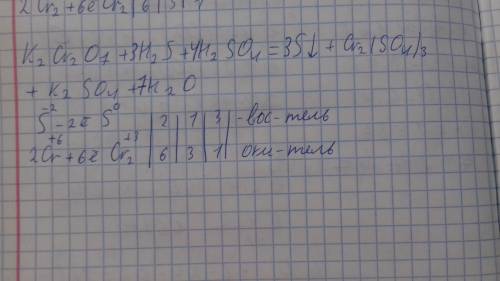 2Cr₂+6ē Cr₂ | 6 | 3 | 1
K₂Cr₂O₇ +3H₂S +4H₂SO₄ = 3S↓ + Cr₂(SO₄)₃
+ K₂SO₄ +7H₂O
S⁻² -2ē S⁰ | 2 | 1 | 3 | -вос-тель
2Cr⁺⁶ +6ē Cr₂⁺³ | 6 | 3 | 1 | оки-тель